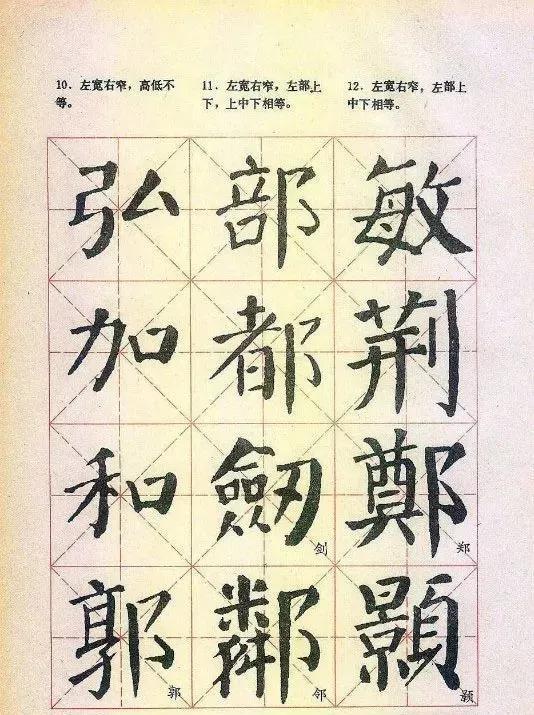 10. 左宽右窄，高低不
等。
11. 左宽右窄，左部上
下，上中下相等。
12. 左宽右窄，左部上
中下相等。
弘
加
和
郭
郭
部
都
劒
剑
鄰
邻
敏
荆
鄭
郑
顥
颢